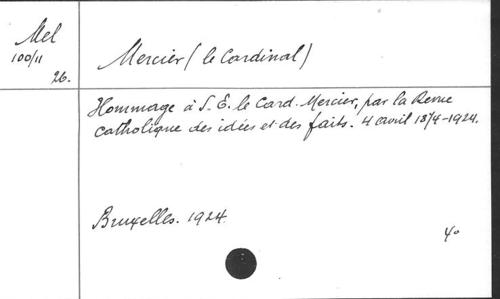 Mel
100/11
26.
Mercier (le Cardinal)
Hommage à S. E. le Card. Mercier, par la Revue
catholique des idées et des faits. 4 avril 1874-1924.
Bruxelles. 1924.
4°